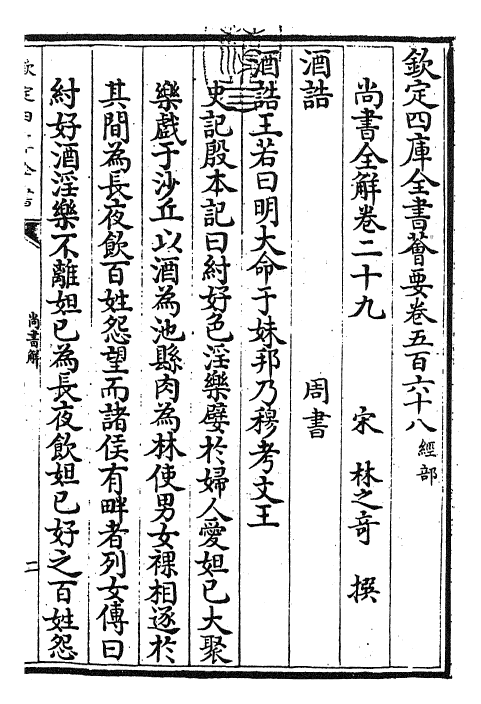 欽定四庫全書薈要卷五百六十八經部
尚書全解卷二十九 宋 林之奇 撰
酒誥 周書
酒誥王若曰明大命于妹邦乃穆考文王
史記殷本記曰紂好色淫樂嬖於婦人愛妲已大聚
樂戲于沙丘以酒為池縣肉為林使男女裸相逐於
其間為長夜飲百姓怨望而諸侯有畔者列女傳曰
紂好酒淫樂不離妲已為長夜飲妲已好之百姓怨
欽定四庫全書
尚書解
二